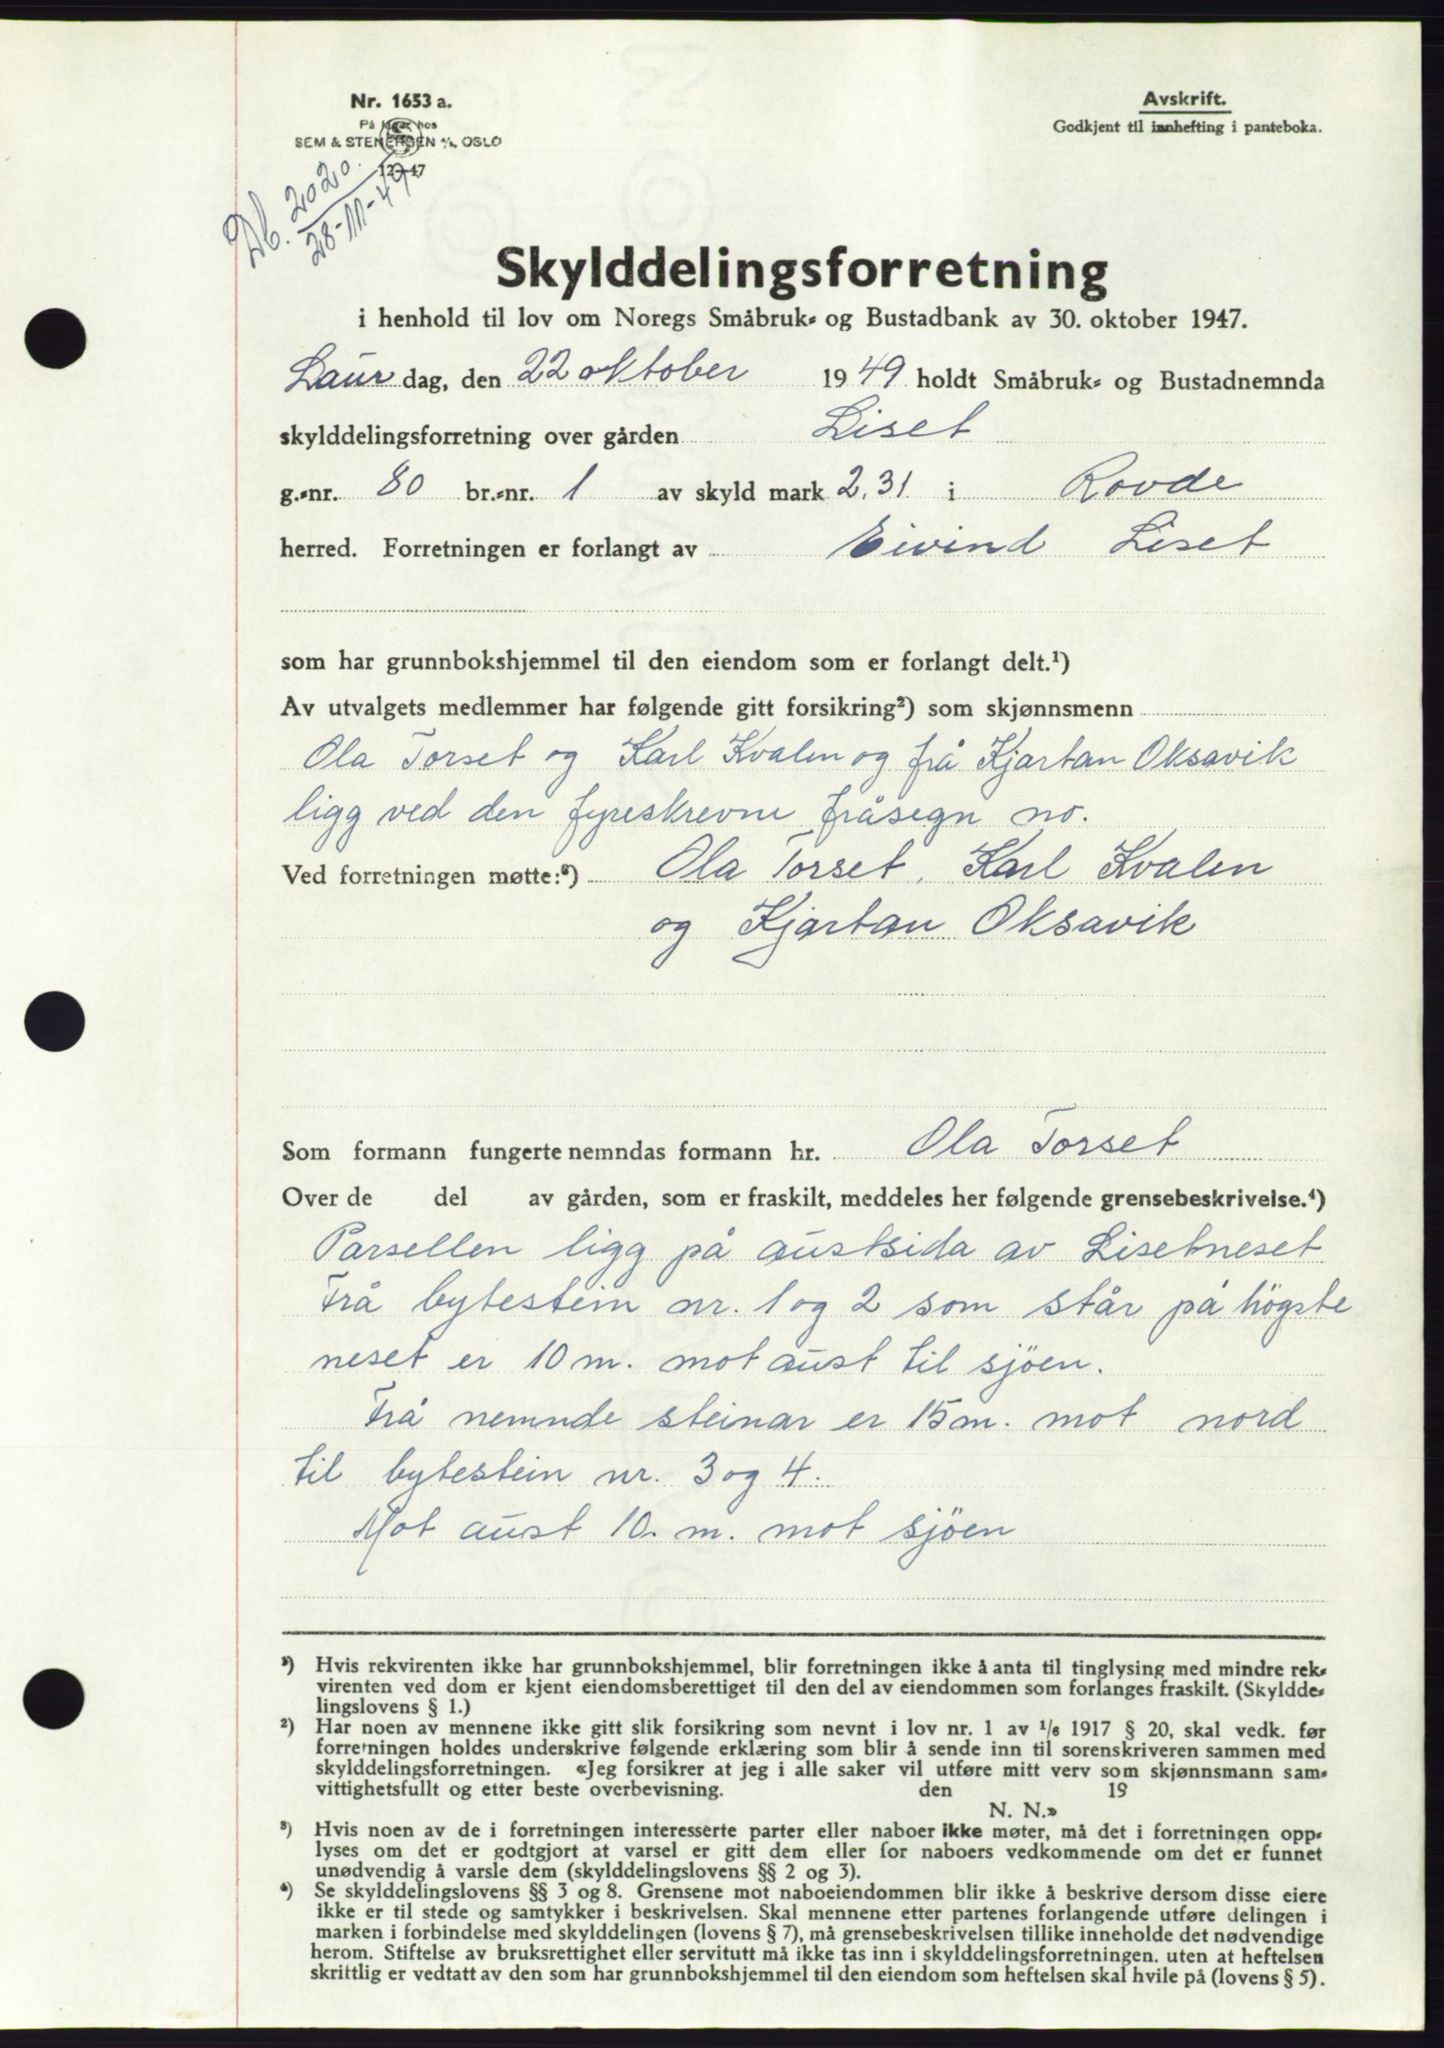 Nr. 1653 a.
På lager hos
SEM & STENERSEN A/S, OSLO
12-47
Avskrift.
Godkjent til innhefting i panteboka.
Db. 2020.
28-11-49
Skylddelingsforretning
i henhold til lov om Noregs Småbruk- og Bustadbank av 30. oktober 1947.
Laur dag, den 22 oktober 1949 holdt Småbruk- og Bustadnemnda
skylddelingsforretning over gården Liset
g.-nr. 80 br.-nr. 1 av skyld mark 2,31 i Rovde
herred. Forretningen er forlangt av Eivind Liset
som har grunnbokshjemmel til den eiendom som er forlangt delt.¹)
Av utvalgets medlemmer har følgende gitt forsikring²) som skjønnsmenn
Ola Torset og Karl Kvalen og frå Kjartan Oksavik
ligg ved den fyreskrevne fråsegn no.
Ved forretningen møtte:³) Ola Torset, Karl Kvalen
og Kjartan Oksavik
Som formann fungerte nemndas formann hr. Ola Torset
Over de del av gården, som er fraskilt, meddeles her følgende grensebeskrivelse.⁴)
Parsellen ligg på austsida av Lisetneset
Frå bytestein nr. 1 og 2 som står på högste
neset er 10 m. mot aust til sjöen.
Frå nemnde steinar er 15 m. mot nord
til bytestein nr. 3 og 4.
Mot aust 10. m. mot sjöen
¹) Hvis rekvirenten ikke har grunnbokshjemmel, blir forretningen ikke å anta til tinglysing med mindre rek-
virenten ved dom er kjent eiendomsberettiget til den del av eiendommen som forlanges fraskilt. (Skyldde-
lingslovens § 1.)
²) Har noen av mennene ikke gitt slik forsikring som nevnt i lov nr. 1 av 1/6 1917 § 20, skal vedk. før
forretningen holdes underskrive følgende erklæring som blir å sende inn til sorenskriveren sammen med
skylddelingsforretningen. «Jeg forsikrer at jeg i alle saker vil utføre mitt verv som skjønnsmann sam-
vittighetsfullt og etter beste overbevisning. den 19
N. N.»
³) Hvis noen av de i forretningen interesserte parter eller naboer ikke møter, må det i forretningen opp-
lyses om det er godtgjort at varsel er gitt dem eller for naboers vedkommende om det er funnet
unødvendig å varsle dem (skylddelingslovens §§ 2 og 3).
⁴) Se skylddelingslovens §§ 3 og 8. Grensene mot naboeiendommen blir ikke å beskrive dersom disse eiere
ikke er til stede og samtykker i beskrivelsen. Skal mennene etter partenes forlangende utføre delingen i
marken i forbindelse med skylddelingen (lovens § 7), må grensebeskrivelsen tillike inneholde det nødvendige
herom. Stiftelse av bruksrettighet eller servitutt må ikke tas inn i skylddelingsforretningen. uten at heftelsen
skrittlig er vedtatt av den som har grunnbokshjemmel til den eiendom som heftelsen skal hvile på (lovens § 5).